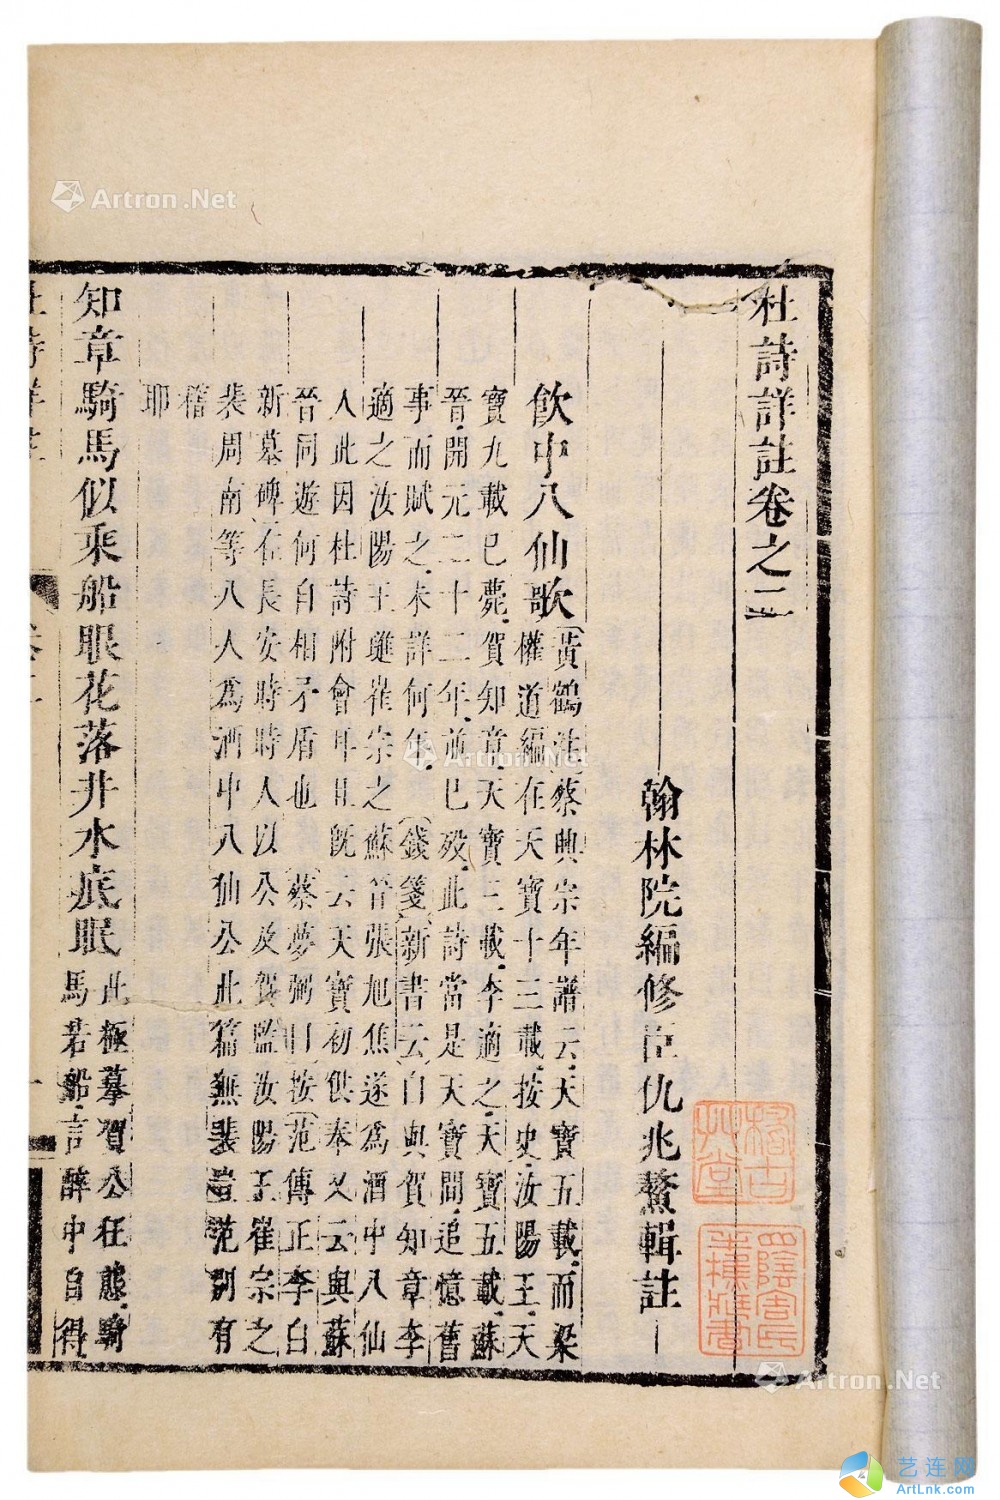 杜詩詳註卷之二
翰林院編修臣仇兆鰲輯註
飲中八仙歌
〔黃鶴註〕蔡興宗年譜云天寶五載而梁
權道編在天寶十三載.按史.汝陽王.天
寶九載已薨.賀知章.天寶三載.李適之.天寶五載.蘇
晉.開元二十二年.前已歿.此詩當是天寶間.追憶舊
事而賦之.未詳何年.〔錢箋〕新書云白與賀知章李
適之汝陽王璡崔宗之蘇晉張旭焦遂爲酒中八仙
人此因杜詩附會耳且既云天寶初供奉又云與蘇
晉同遊何自相矛盾也〔蔡夢弼曰〕按范傳正李白
新墓碑在長安時時人以公及賀監汝陽王崔宗之
裴周南等八人爲酒中八仙公此篇無裴豈范別有
稽
耶
知章騎馬似乘船眼花落井水底眠
此極摹賀公狂態.騎
馬若船.言醉中自得
杜詩詳註
卷二
一
Artron.Net
Artron.Net
Artron.Net
艺连网
ArtLnk.com